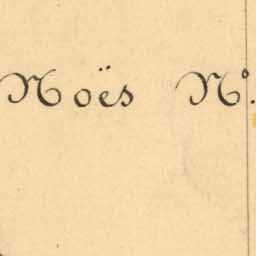 Noës Nº.